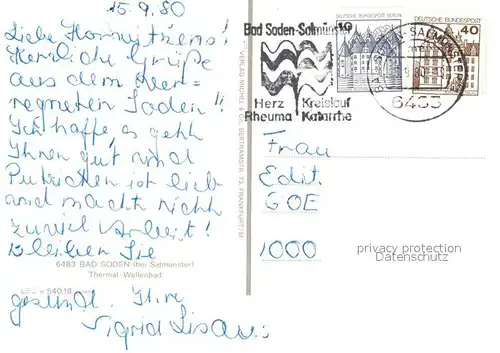 15.9.80
Liebe
Herzliche Grüße
aus dem
regneten Soden!!
Ich hoffe, es geht
Ihnen gut und
ist lieb
und macht nicht
zuviel Arbeit!
Bleiben Sie
6483 BAD SODEN (bei Salmünster)
Thermal-Wellenbad
540.18
gesund. Ihre
Sigrid
VERLAG MICHEL & CO., BERTRAMSTR. 73, FRANKFURT/M
Bad Soden-Salmünster
Herz Kreislauf
Rheuma Katarrhe
10 DEUTSCHE BUNDESPOST BERLIN
DEUTSCHE BUNDESPOST 40
6483
Frau
Edit.
GOE
1000
privacy protection
Datenschutz